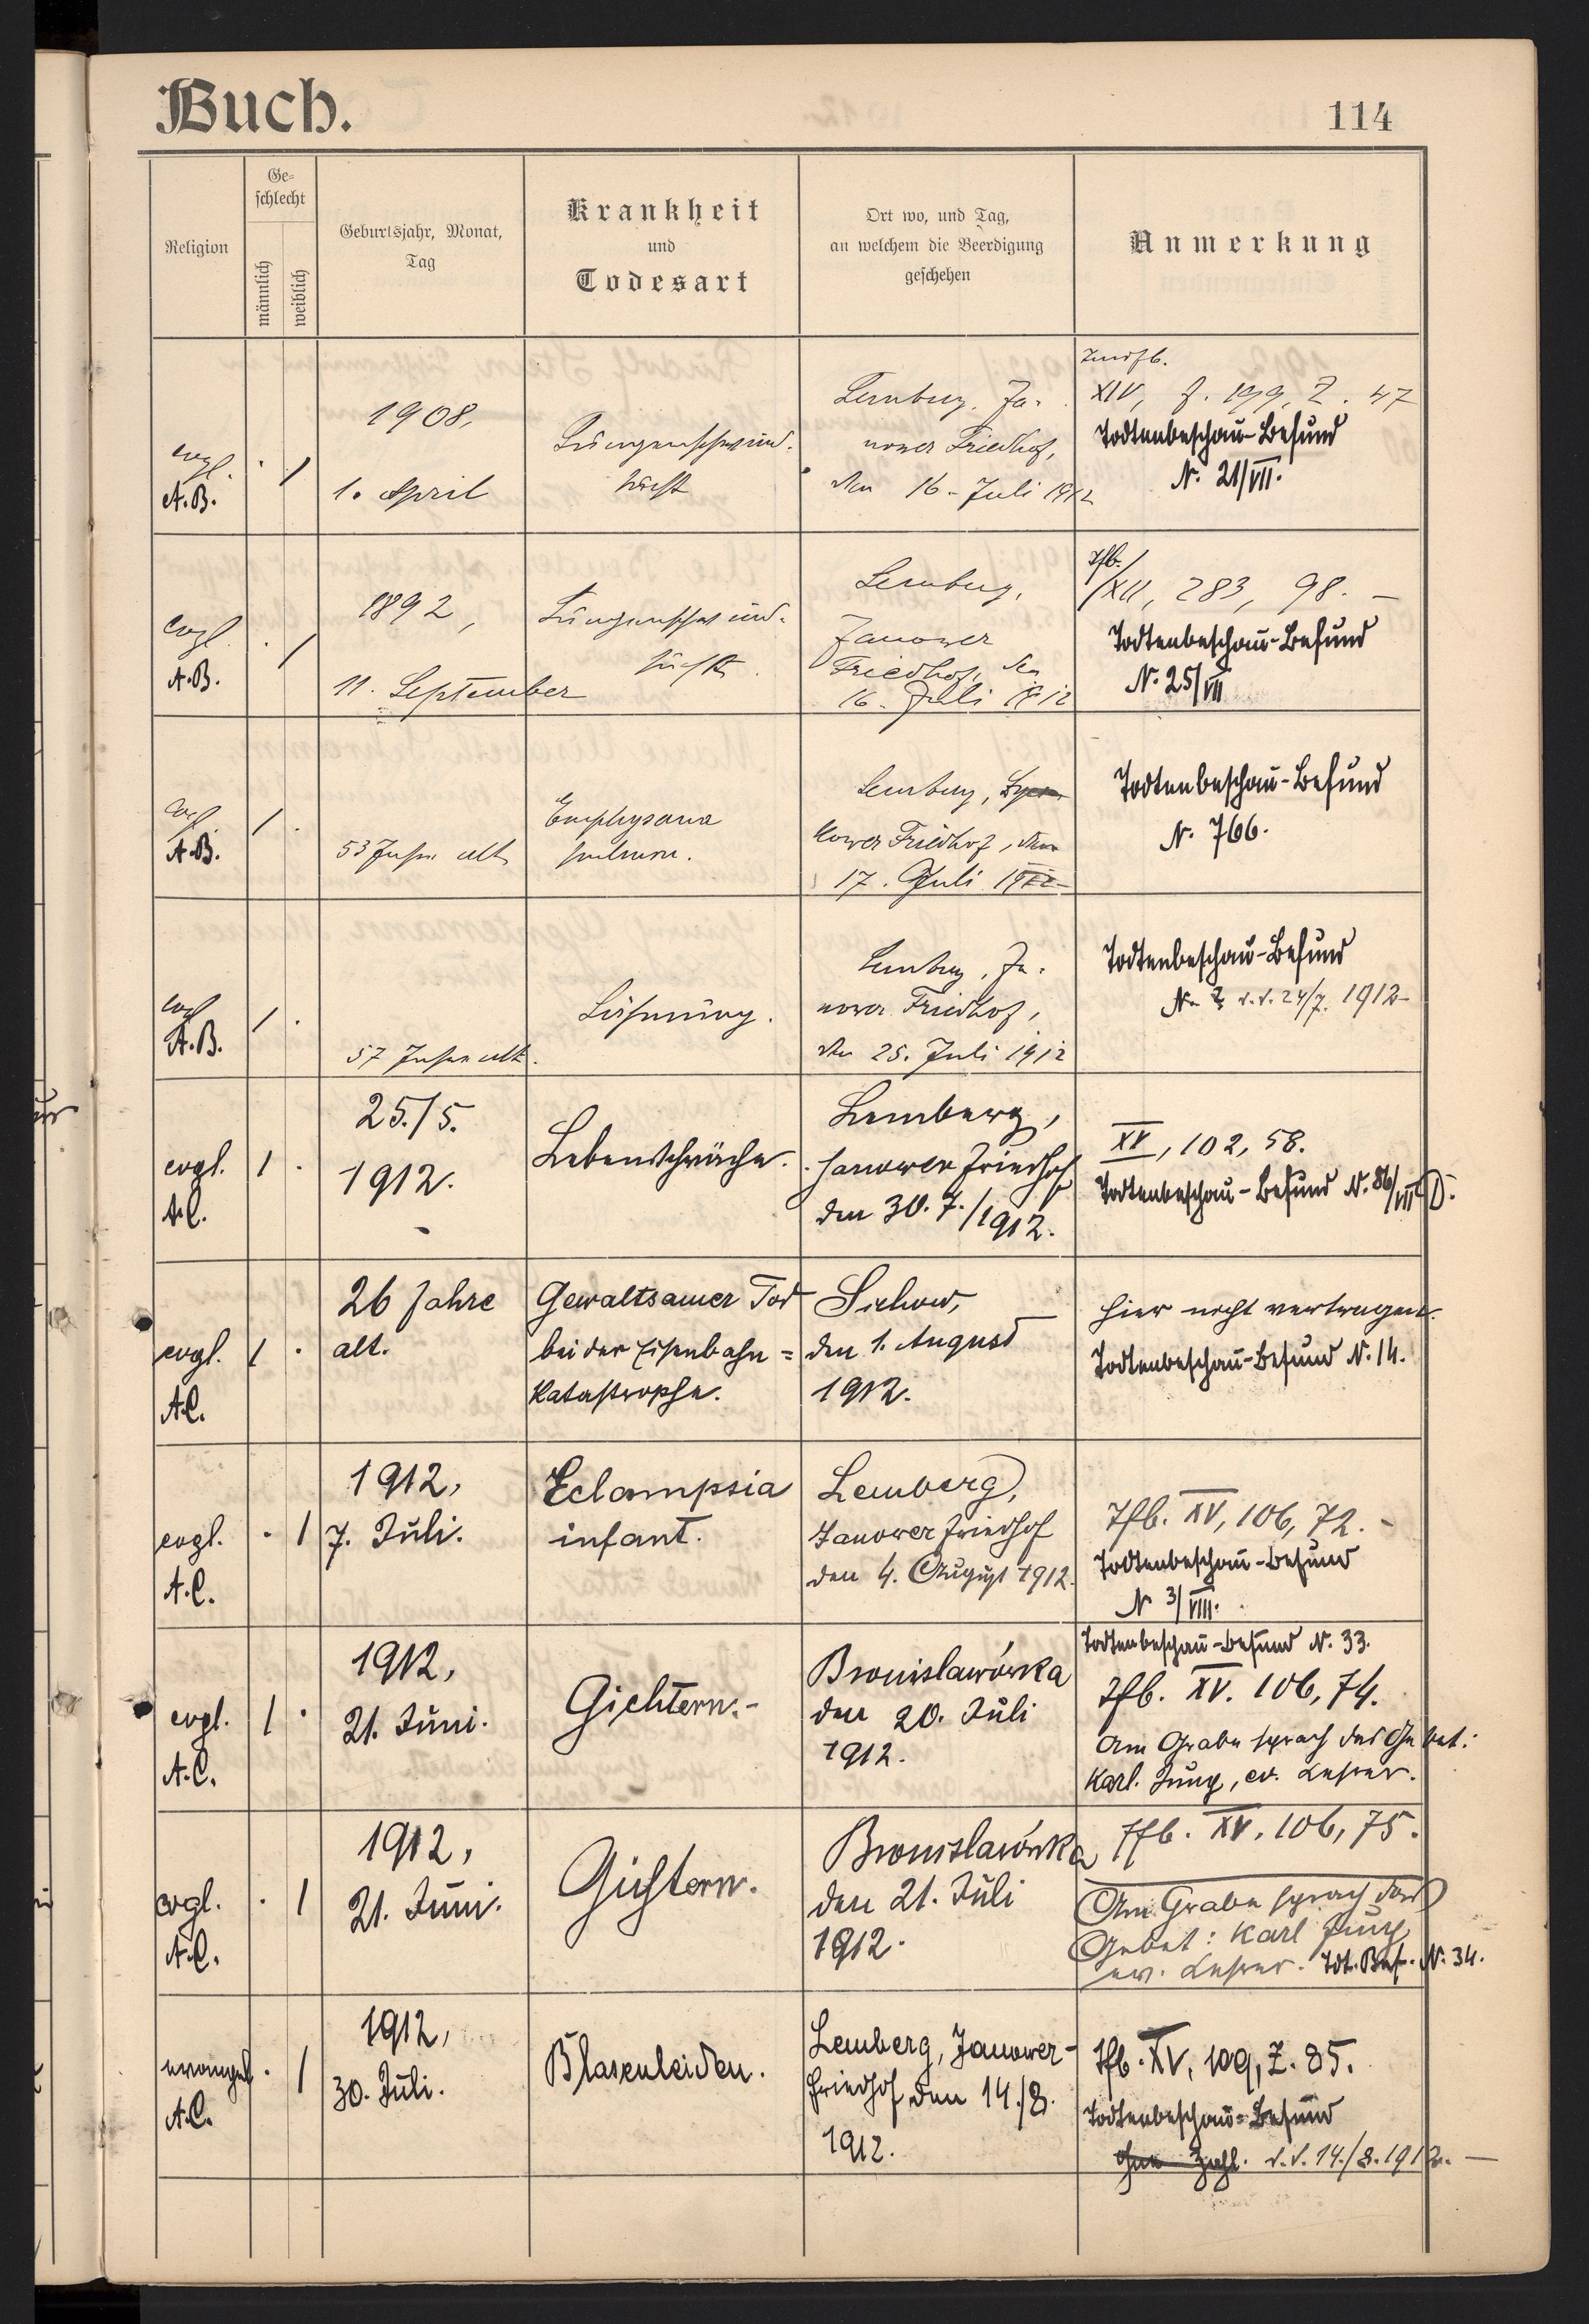 Buch.
114
Religion
Ge-
schlecht
männlich
weiblich
Geburtsjahr, Monat,
Tag
Krankheit
und
Todesart
Ort wo, und Tag,
an welchem die Beerdigung
geschehen
Anmerkung
evgl.
A.B.
. /
1908,
1. April
Lungenschwind-
sucht
Lemberg, Ja-
nower Friedhof,
den 16. Juli 1912
XIV, S. 199, Z. 47
Todtenbeschau-Befund
N. 21/VII.
evgl.
A.B.
. /
1892,
11. September
Lungenschwind-
sucht.
Lemberg,
Janower
Friedhof, den
16. Juli 1912
Tfb.
XII, 283, 98. –
Todtenbeschau-Befund
N. 25/VII
evgl.
A.B.
/ .
53 Jahre alt
Emphysema
pulmon.
Lemberg, Lycza-
kower Friedhof, den
17. Juli 1912
Todtenbeschau-Befund
N. 766.
evgl.
A.B.
/ .
57 Jahre alt.
Lähmung.
Lemberg, Ja-
nower Friedhof,
den 25. Juli 1912
Todtenbeschau-Befund
N. ? v. 24/7. 1912–
evgl.
A.C.
1 .
25./5.
1912.
Lebensschwäche.
Lemberg,
Janower Friedhof
den 30. 7./1912.
XV, 102, 58.
Todtenbeschau-Befund N. 86/VII D.
evgl.
A.C.
1 .
26 Jahre
alt.
Gewaltsamer Tod
bei der Eisenbahn=
Katastrophe.
Sichow,
den 1. August
1912.
hier nicht vertragen.
Todtenbeschau-Befund N. 14.
evgl.
A.C.
. 1
1912,
7. Juli.
Eclampsia
infant.
Lemberg,
Janower Friedhof
den 4. August 1912.
Tfb. XV, 106, 72. –
Todtenbeschau-Befund
N 3/VIII.
evgl.
A.C.
1 .
1912,
21. Juni.
Gichtern.–
Bronislawówka
den 20. Juli
1912.
Todtenbeschau-Befund N. 33.
Tfb. XV. 106, 74.
Am Grabe sprach das Gebet:
Karl Jung, ev. Lehrer.
evgl.
A.C.
. 1
1912,
21. Juni.
Gichtern.
Bronislawówka
den 21. Juli
1912.
Tfb. XV. 106, 75.
Am Grabe sprach das
Gebet: Karl Jung
ev. Lehrer. Tdt. Bef. N. 34.
evangel.
A.C.
. 1
1912,
30. Juli.
Blasenleiden.
Lemberg, Janower-
Friedhof den 14./8.
1912.
Tfb. XV, 109, Z. 85.
Todtenbeschau-Befund
ohne Zahl. v. 14./8. 1912. –